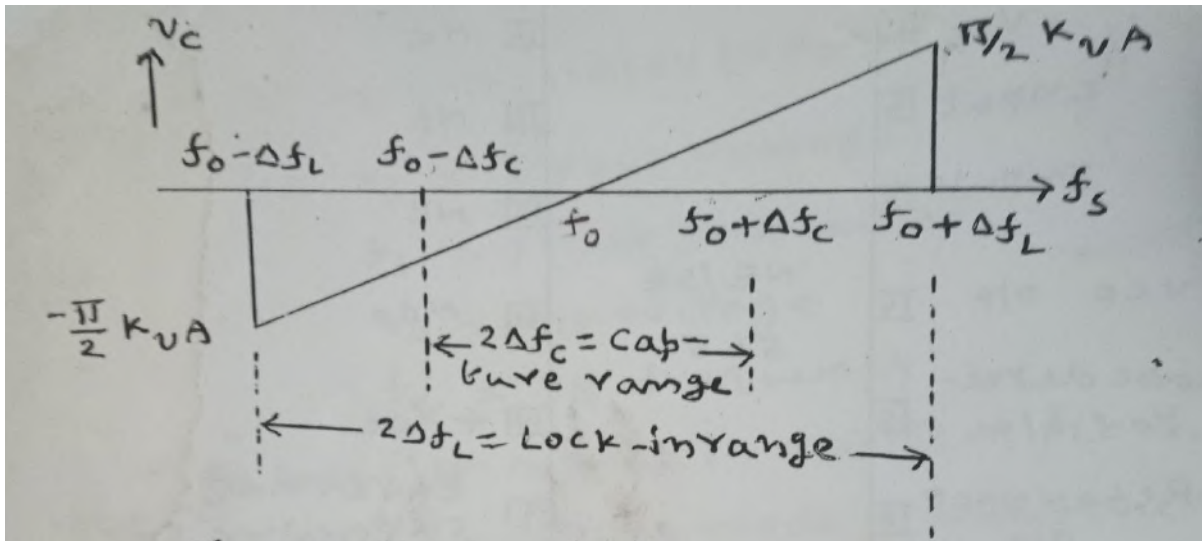 v_c
π/2 K_v A
f_0 - Δf_L
f_0 - Δf_c
f_s
f_0
f_0 + Δf_c
f_0 + Δf_L
-π/2 K_v A
2Δf_c = Cap-
ture range
2Δf_L = Lock-in range